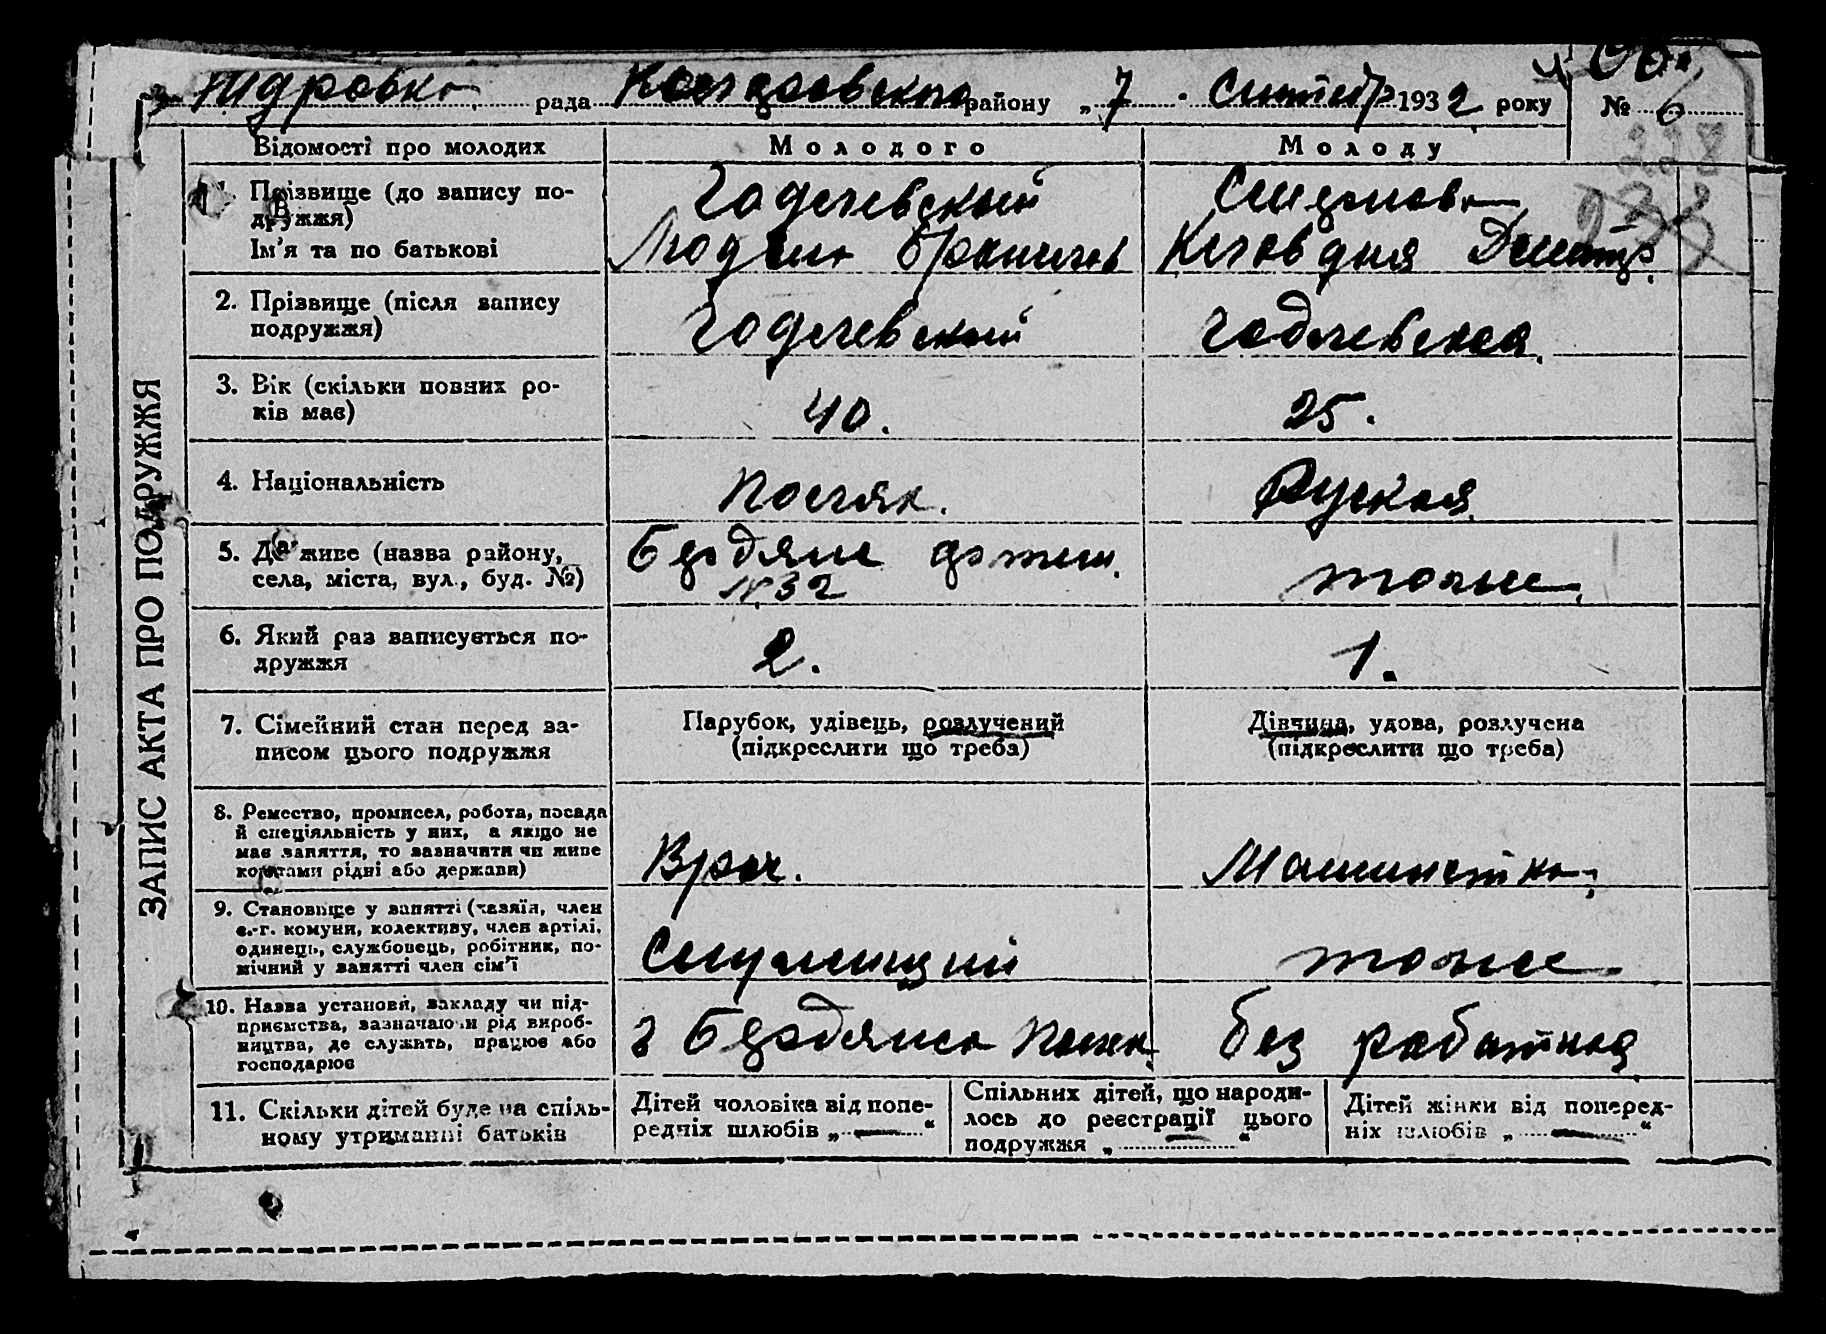 рада району „ 7 . Сентебр 1932 року № 6
Відомості про молодих
Молодого
Молоду
228
1. Прізвище (до запису по-
дружжя)
Ім'я та по батькові
Годлевский
Франців
Клавдия Дмитр.
2. Прізвище (після запису
подружжя)
Годлевский
Годлевская.
3. Вік (скільки повних ро-
ків має)
40.
25.
4. Національність
Поляк.
Руская
5. Де живе (назва району,
села, міста, вул., буд. №)
№ 32
тоже.
6. Який раз записується по-
дружжя
2.
1.
7. Сімейний стан перед за-
писом цього подружжя
Парубок, удівець, розлучений
(підкреслити що треба)
Дівчина, удова, розлучена
(підкреслити що треба)
8. Ремество, промисел, робота, посада
й спеціяльність у них, а якщо не
має заняття, то зазначити чи живе
коштами рідні або держави)
Врач.
Машинистка.
9. Становище у занятті (хазяїн, член
с.-г. комуни, колективу, член артілі,
одинець, службовець, робітник, по-
мічний у занятті член сім'ї
Служищий
тоже.
10. Назва установи, закладу чи під-
приємства, зазначаючи рід вироб-
ництва, де служить, працює або
господарює
без работная
11. Скільки дітей буде на спіль-
ному утриманні батьків
Дітей чоловіка від попе-
редніх шлюбів „ — “
Спільних дітей, що народи-
лось до реєстрації цього
подружжя „ — “
Дітей жінки від поперед-
ніх шлюбів „ — “
ЗАПИС АКТА ПРО ПОДРУЖЖЯ